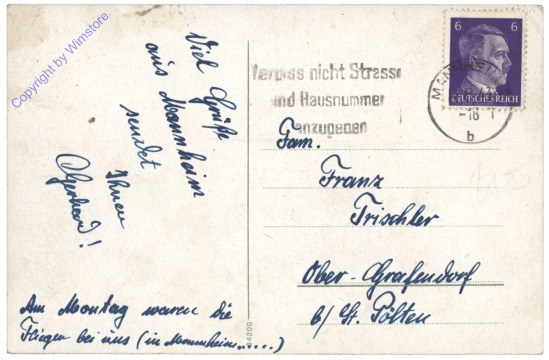 Copyright by Wimstore
Viel Grüße
aus Mannheim
sendet
Ihnen
Gerhard!
Am Montag waren die
Flieger bei uns (in Mannheim.....)
Vergiss nicht Strasse
und Hausnummer
anzugeben
6 6
DEUTSCHES REICH
-18
b
Fam.
Franz
Trischler
Ober-Grafendorf
b/ St. Pölten